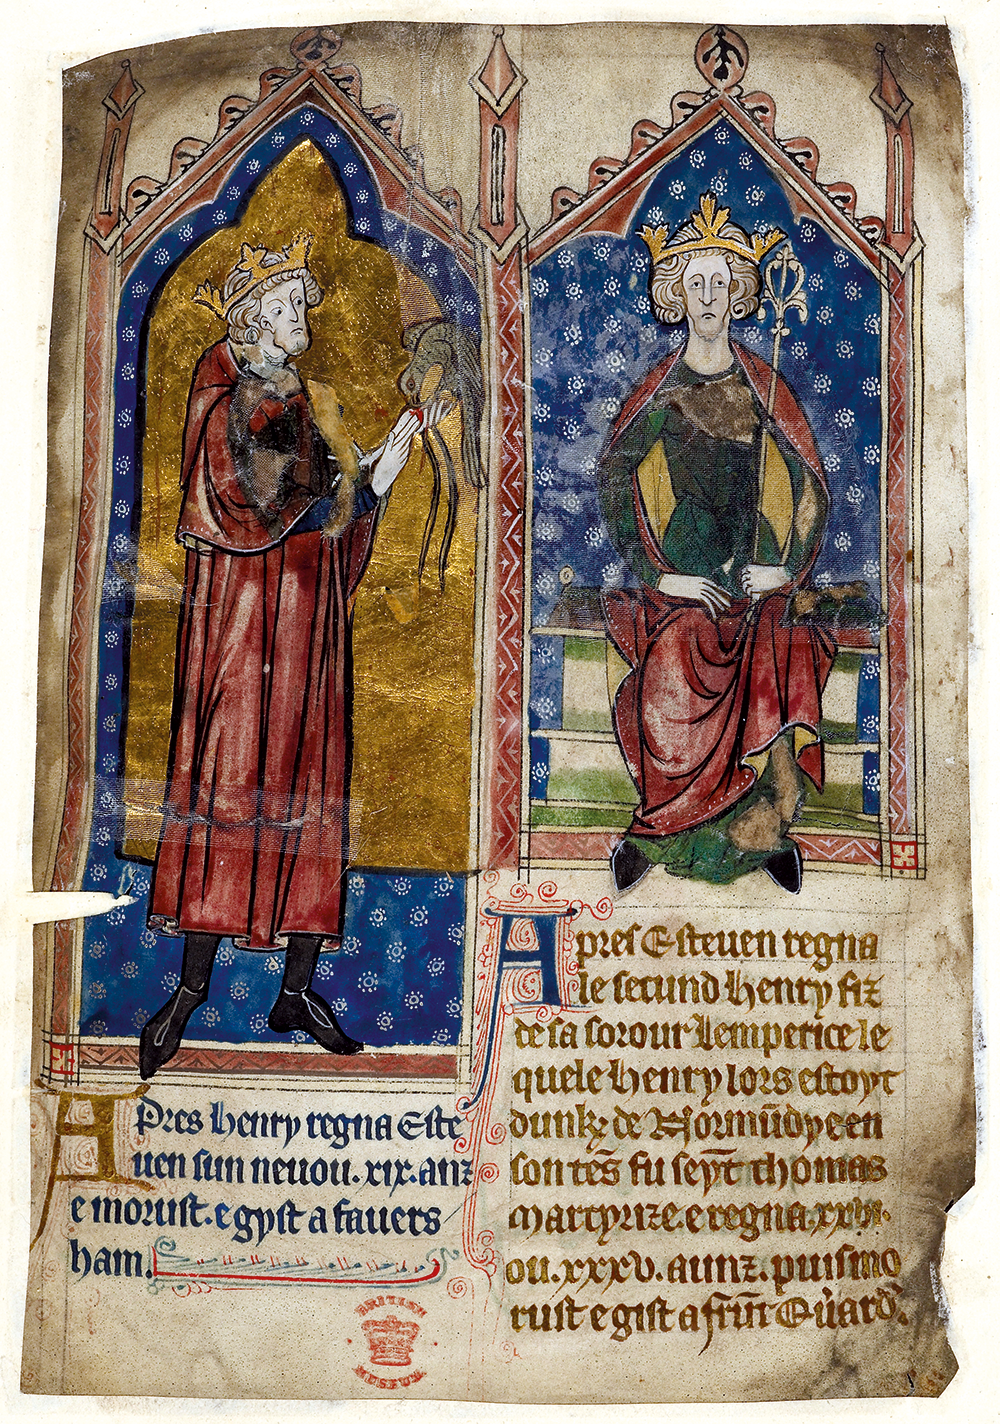 Apres henry regna Este
uen sun neuou .xix. anz
e morust . e gyst a fauers
ham.
Apres Esteuen regna
le secund henry fiz
de sa sorour lemperice le
quele henry lors estoyt
dunk; de Normūdye en
son tēs fu seyt thomas
martyrize. e regna
ou .xxxv. aunz. puis mo
rust e gist a
BRITISH
MUSEUM